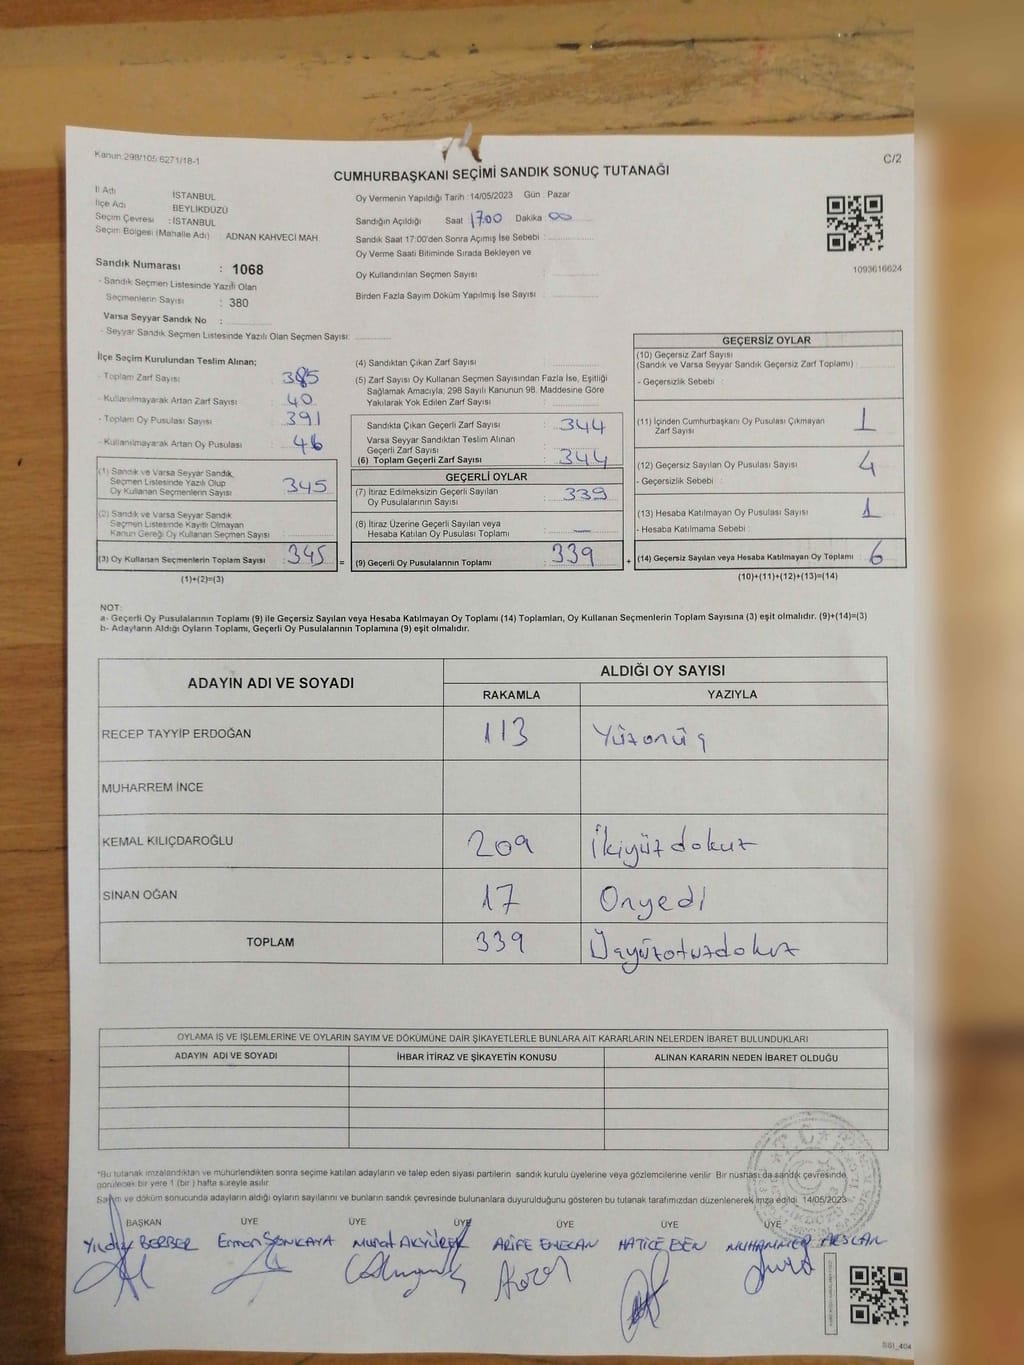 Kanun:298/105:6271/18-1
C/2
CUMHURBAŞKANI SEÇİMİ SANDIK SONUÇ TUTANAĞI
İl Adı İSTANBUL
İlçe Adı BEYLİKDÜZÜ
Seçim Çevresi : İSTANBUL
Seçim Bölgesi (Mahalle Adı) ADNAN KAHVECİ MAH
Sandık Numarası : 1068
- Sandık Seçmen Listesinde Yazılı Olan
Seçmenlerin Sayısı : 380
Varsa Seyyar Sandık No :
- Seyyar Sandık Seçmen Listesinde Yazılı Olan Seçmen Sayısı:
Oy Vermenin Yapıldığı Tarih : 14/05/2023 Gün : Pazar
Sandığın Açıldığı Saat 17:00 Dakika 00
Sandık Saat 17:00'den Sonra Açımış İse Sebebi :
Oy Verme Saati Bitiminde Sırada Bekleyen ve
Oy Kullandırılan Seçmen Sayısı :
Birden Fazla Sayım Döküm Yapılmış İse Sayısı :
1093616624
İlçe Seçim Kurulundan Teslim Alınan;
- Toplam Zarf Sayısı : 385
- Kullanılmayarak Artan Zarf Sayısı : 40
- Toplam Oy Pusulası Sayısı : 391
- Kullanılmayarak Artan Oy Pusulası : 46
(1) Sandık ve Varsa Seyyar Sandık,
Seçmen Listesinde Yazılı Olup
Oy Kullanan Seçmenlerin Sayısı : 345
(2) Sandık ve Varsa Seyyar Sandık
Seçmen Listesinde Kayıtlı Olmayan
Kanun Gereği Oy Kullanan Seçmen Sayısı :
(3) Oy Kullanan Seçmenlerin Toplam Sayısı : 345 =
(1)+(2)=(3)
(4) Sandıktan Çıkan Zarf Sayısı
(5) Zarf Sayısı Oy Kullanan Seçmen Sayısından Fazla İse, Eşitliği
Sağlamak Amacıyla; 298 Sayılı Kanunun 98. Maddesine Göre
Yakılarak Yok Edilen Zarf Sayısı :
Sandıkta Çıkan Geçerli Zarf Sayısı : 344
Varsa Seyyar Sandıktan Teslim Alınan
Geçerli Zarf Sayısı :
(6) Toplam Geçerli Zarf Sayısı : 344
GEÇERLİ OYLAR
(7) İtiraz Edilmeksizin Geçerli Sayılan
Oy Pusulalarının Sayısı : 339
(8) İtiraz Üzerine Geçerli Sayılan veya
Hesaba Katılan Oy Pusulası Toplamı : —
(9) Geçerli Oy Pusulalarının Toplamı : 339 +
GEÇERSİZ OYLAR
(10) Geçersiz Zarf Sayısı
(Sandık ve Varsa Seyyar Sandık Geçersiz Zarf Toplamı) :
- Geçersizlik Sebebi :
(11) İçinden Cumhurbaşkanı Oy Pusulası Çıkmayan
Zarf Sayısı 1
(12) Geçersiz Sayılan Oy Pusulası Sayısı : 4
- Geçersizlik Sebebi :
(13) Hesaba Katılmayan Oy Pusulası Sayısı : 1
- Hesaba Katılmama Sebebi :
(14) Geçersiz Sayılan veya Hesaba Katılmayan Oy Toplamı : 6
(10)+(11)+(12)+(13)=(14)
NOT:
a- Geçerli Oy Pusulalarının Toplamı (9) ile Geçersiz Sayılan veya Hesaba Katılmayan Oy Toplamı (14) Toplamları, Oy Kullanan Seçmenlerin Toplam Sayısına (3) eşit olmalıdır. (9)+(14)=(3)
b- Adayların Aldığı Oyların Toplamı, Geçerli Oy Pusulalarının Toplamına (9) eşit olmalıdır.
ADAYIN ADI VE SOYADI ALDIĞI OY SAYISI
RAKAMLA YAZIYLA
RECEP TAYYİP ERDOĞAN 113 Yüzonüç
MUHARREM İNCE
KEMAL KILIÇDAROĞLU 209 İkiyüzdokuz
SİNAN OĞAN 17 Onyedi
TOPLAM 339 Üçyüzotuzdokuz
OYLAMA İŞ VE İŞLEMLERİNE VE OYLARIN SAYIM VE DÖKÜMÜNE DAİR ŞİKAYETLERLE BUNLARA AİT KARARLARIN NELERDEN İBARET BULUNDUKLARI
ADAYIN ADI VE SOYADI İHBAR İTİRAZ VE ŞİKAYETİN KONUSU ALINAN KARARIN NEDEN İBARET OLDUĞU
*Bu tutanak imzalandıktan ve mühürlendikten sonra seçime katılan adayların ve talep eden siyasi partilerin sandık kurulu üyelerine veya gözlemcilerine verilir. Bir nüshası da sandık çevresinde
görülecek bir yere 1 (bir) hafta süreyle asılır.
Sayım ve döküm sonucunda adayların aldığı oyların sayılarını ve bunların sandık çevresinde bulunanlara duyurulduğunu gösteren bu tutanak tarafımızdan düzenlenerek imza edildi. 14/05/2023
BAŞKAN ÜYE ÜYE ÜYE ÜYE ÜYE ÜYE
Yıldız BERBER Erman SONKAYA Murat AKYÜREK ARİFE HATİCE ESEN MUHAMMER ARSLAN
T.C.